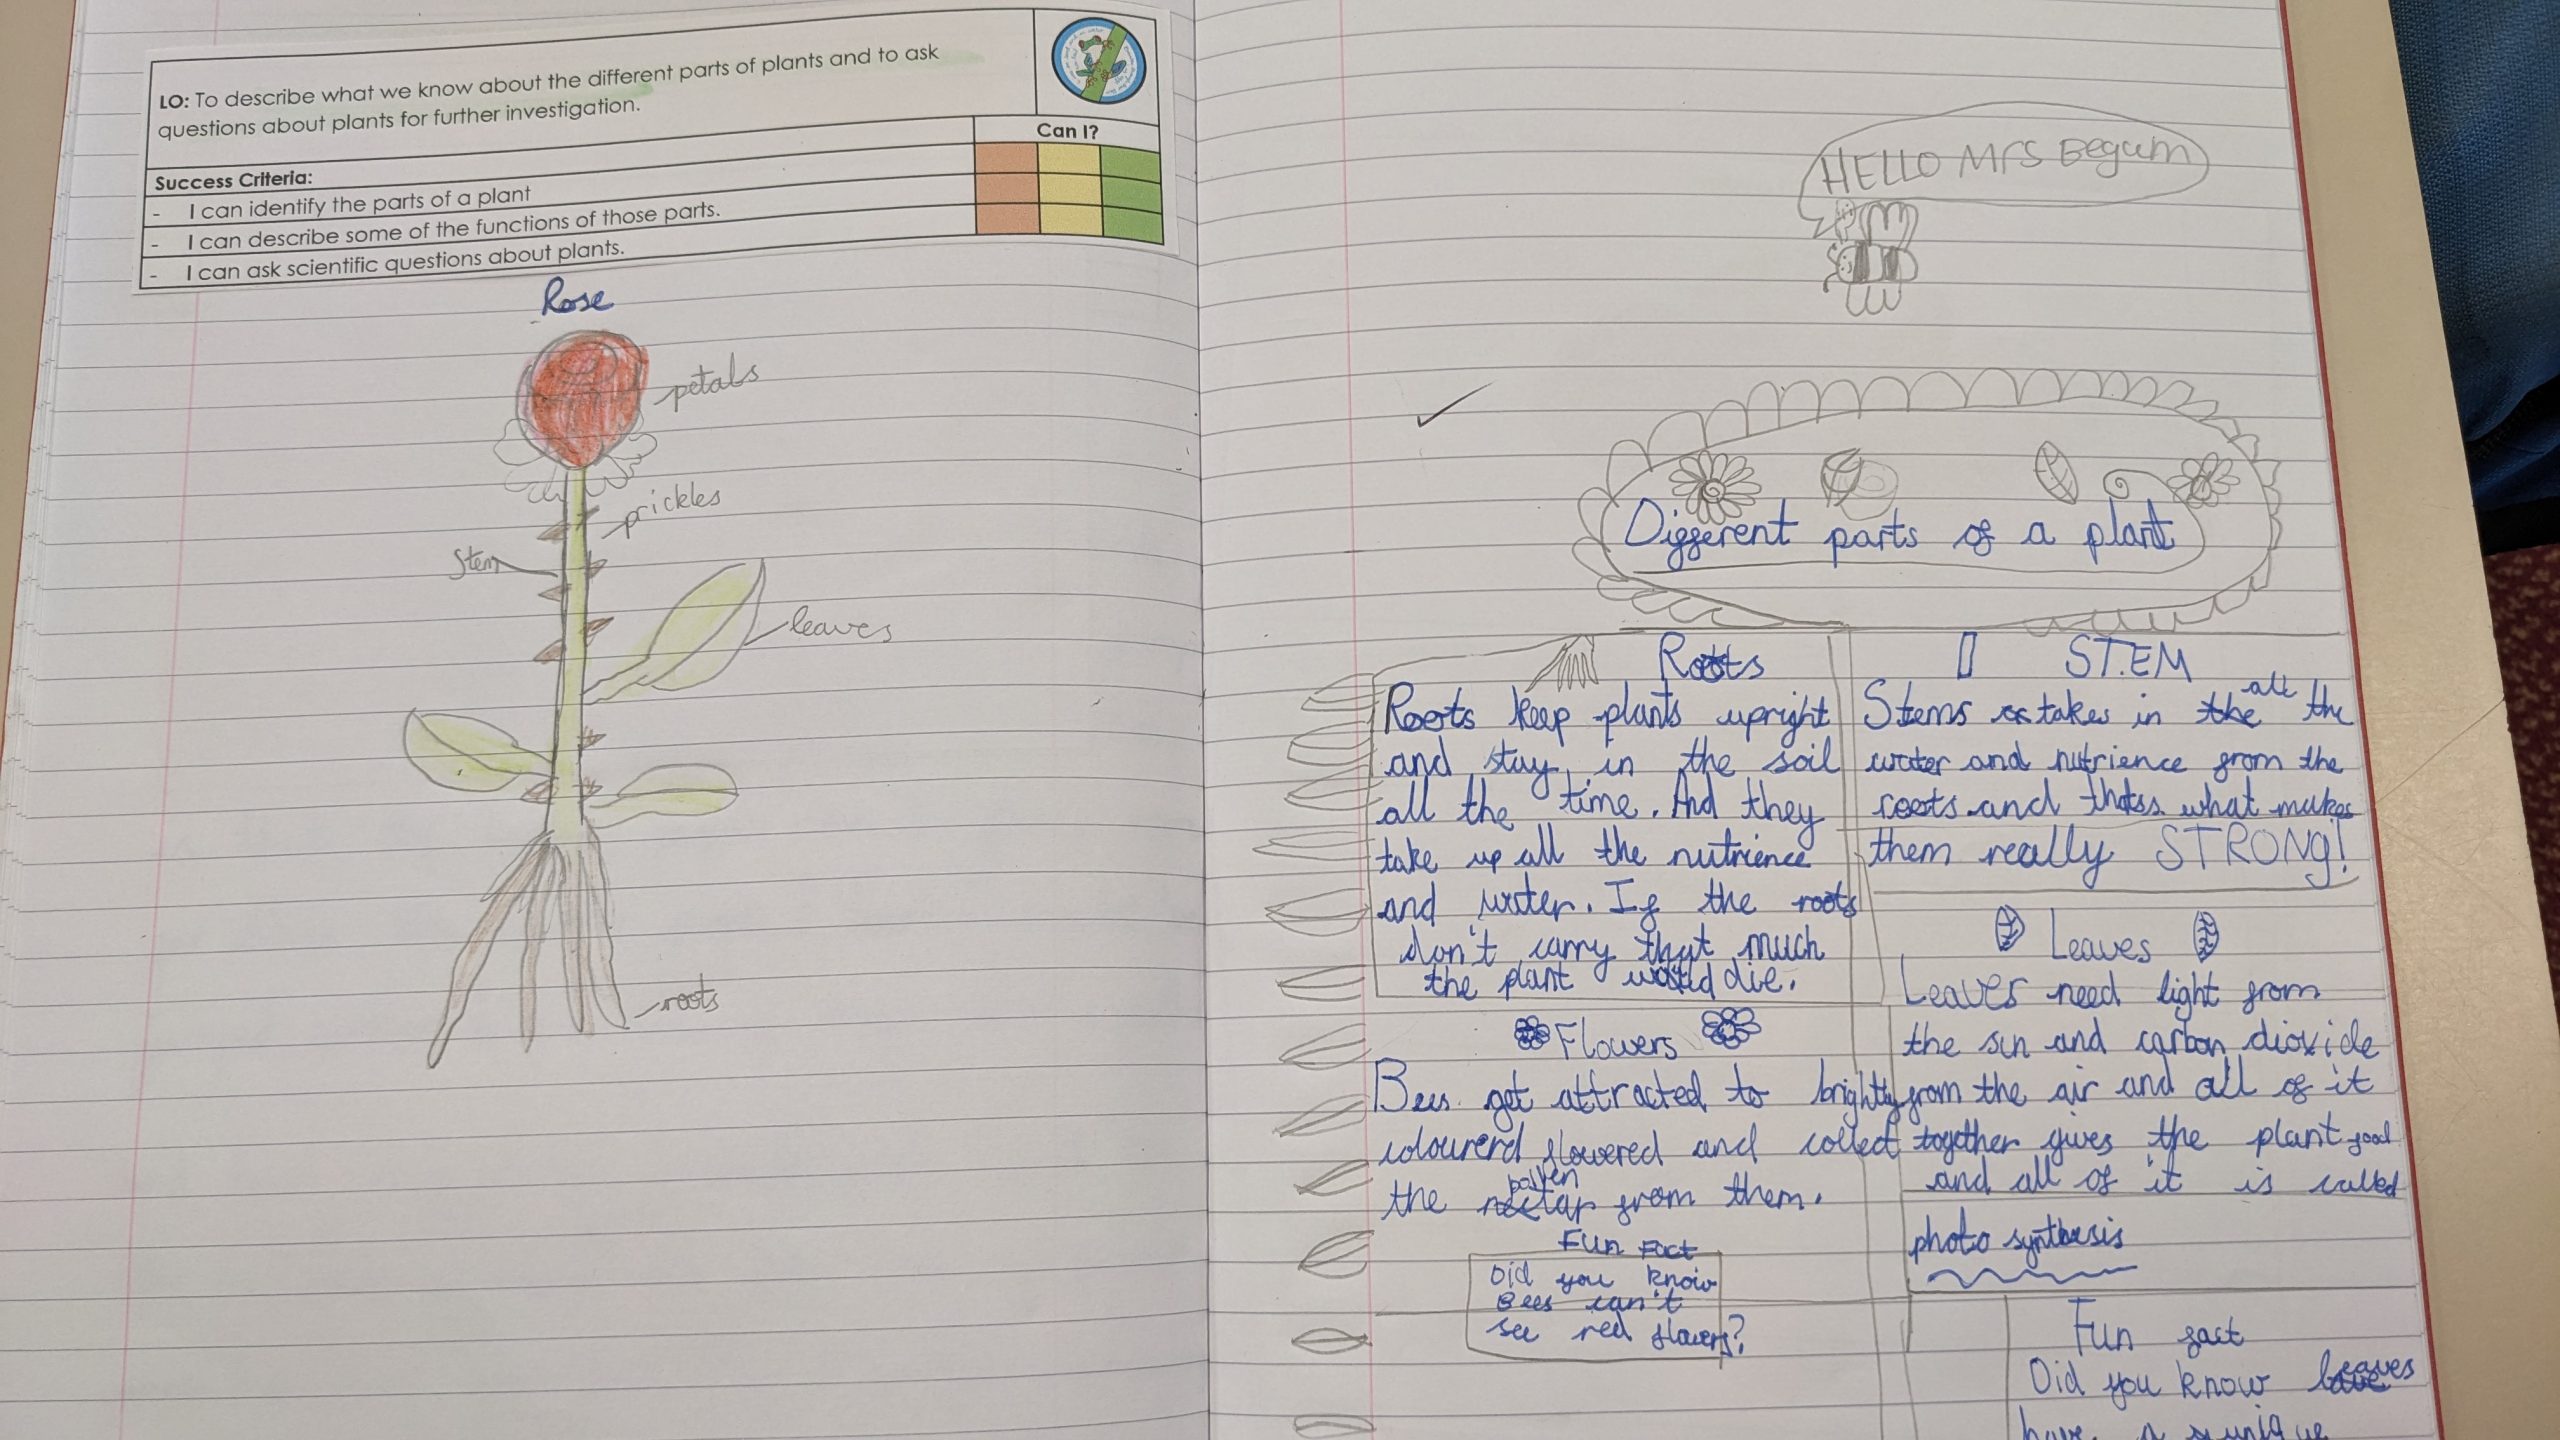 LO: To describe what we know about the different parts of plants and to ask
questions about plants for further investigation.
Can I?
Success Criteria:
- I can identify the parts of a plant
- I can describe some of the functions of those parts.
- I can ask scientific questions about plants.
Rose
petals
prickles
Stem
leaves
roots
HELLO Mrs Begum
Different parts of a plant
Roots
Roots keep plants upright
and stay in the soil
all the time. And they
take up all the nutrience
and water. If the roots
don't carry that much
the plant would die.
STEM
Stems takes in the all the
water and nutrience from the
roots and thats what makes
them really STRONG!
Leaves
Leaves need light from
the sun and carbon dioxide
from the air and all of it
together gives the plant food
and all of it is called
photo synthesis
Flowers
Bees get attracted to brightly
colourerd flowered and collect
the nectar pollen from them.
Fun Fact
Did you know
Bees can't
see red flowers?
Fun fact
Did you know leaves
have a unique